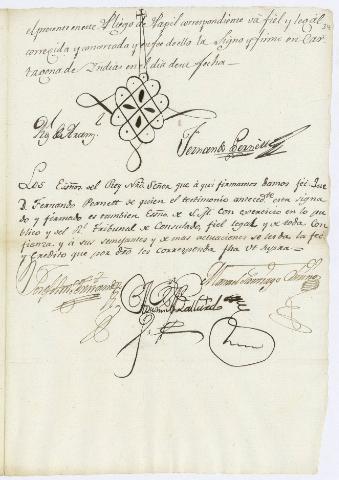 34
el presente en este Pliego de Papel correspondiente va fiel y legal
corregida y concertada y en fee de ello la signo y firmo en Car-
tagena de Indias en el dia de su fecha.
Fernando Pernett
Los Essnos. del Rey Ntro. Señor que aqui firmamos damos feé: Que
D. Fernando Pernett de quien el testimonio antecedte. esta signa
do y firmado es tambien Essno. de S. M. con exercicio en lo pu
blico y del Rl. Tribunal de Consulado, fiel legal y de toda con
fianza, y à sus semejantes y de mas actuaciones se les da la feé
y credito que por dro. les corresponde fha. Ut supra.
Manuel